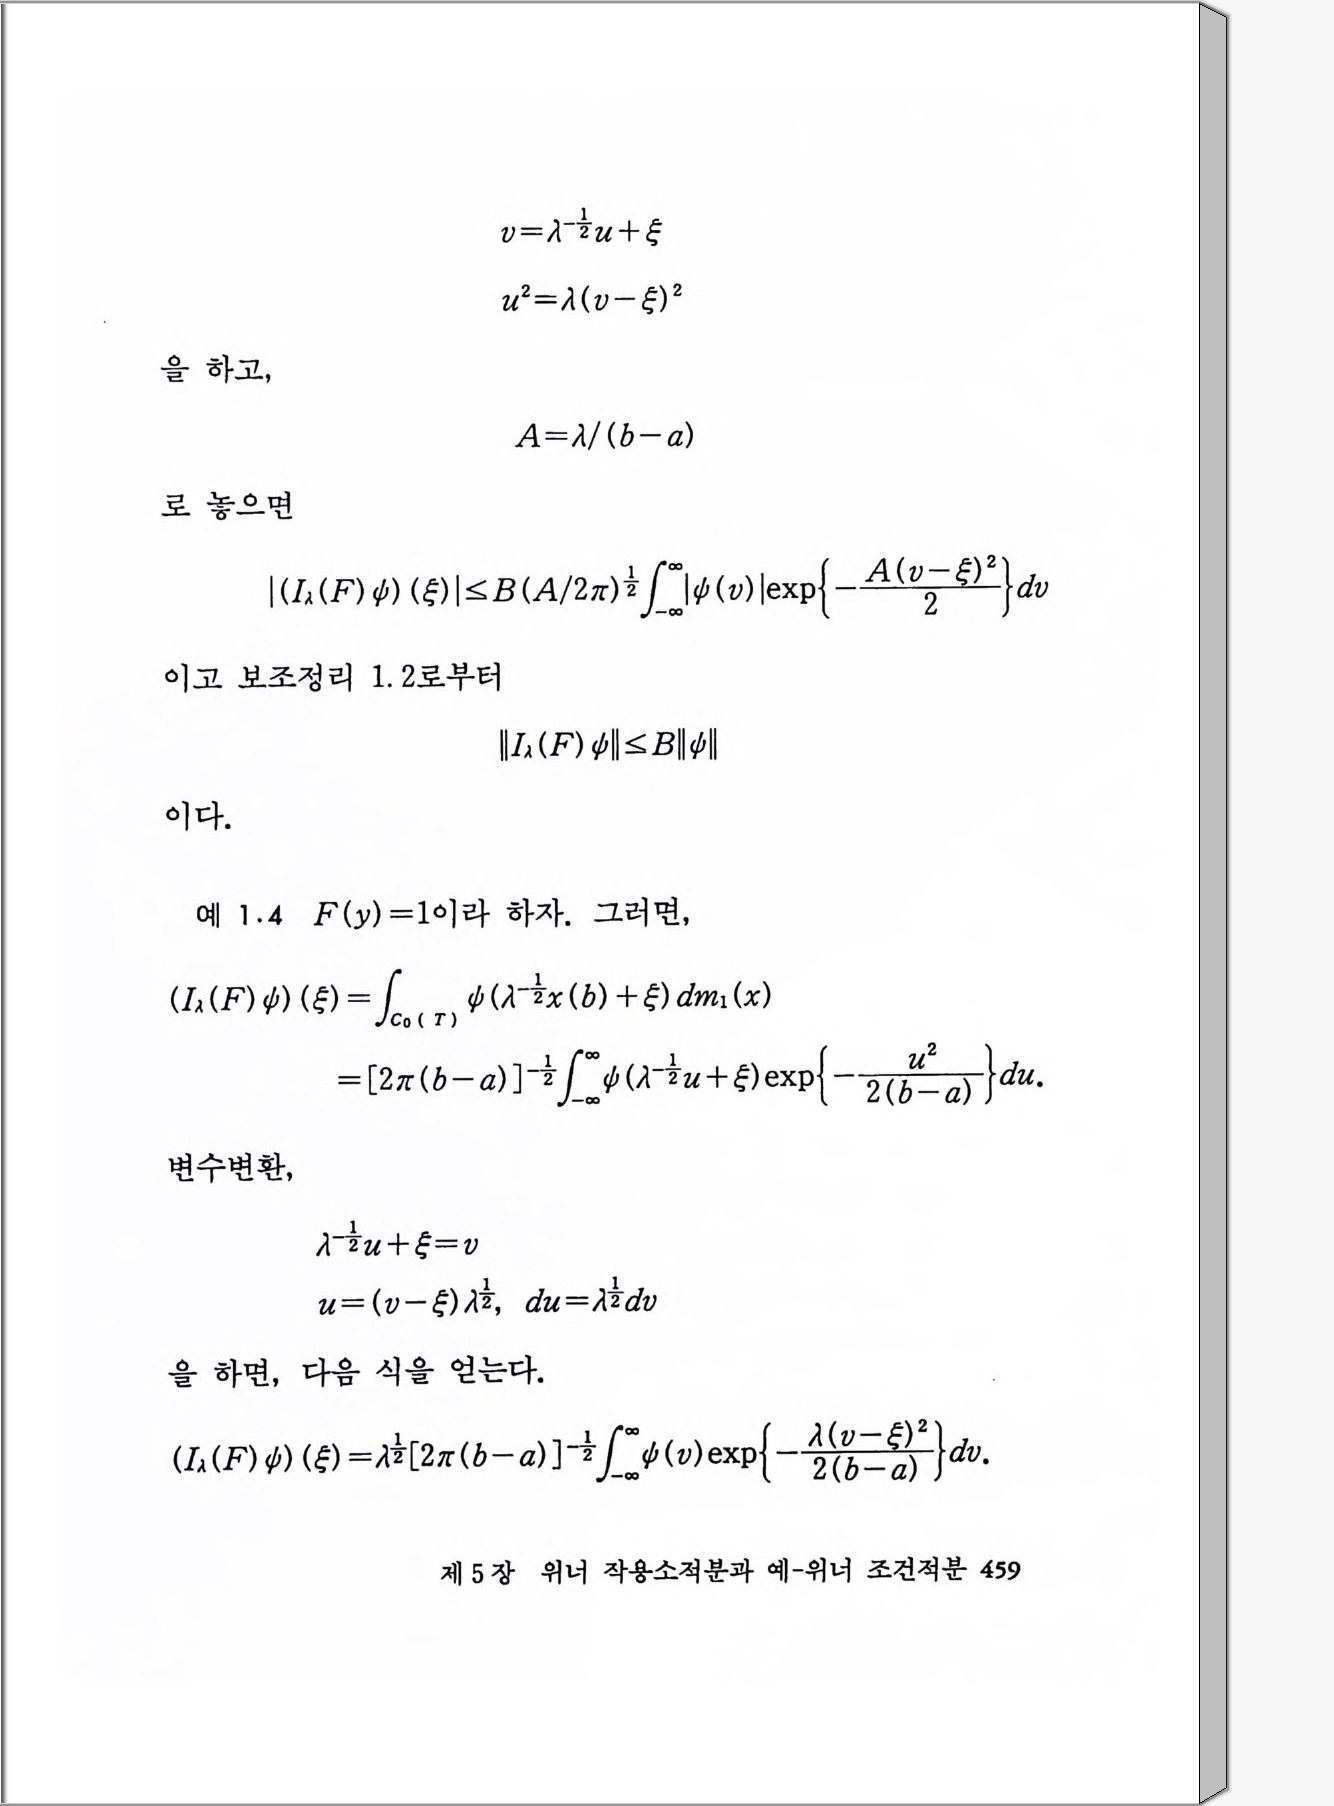 v=λ^{-\frac{1}{2}}u+ξ
u²=λ(v-ξ)²
을 하고,
A=λ/(b-a)
로 놓으면
|(I_λ(F)ψ)(ξ)|≤B(A/2π)^{\frac{1}{2}}∫_{-∞}^{∞}|ψ(v)|exp{-\frac{A(v-ξ)²}{2}}dv
이고 보조정리 1.2로부터
‖I_λ(F)ψ‖≤B‖ψ‖
이다.
예 1.4 F(y)=1이라 하자. 그러면,
(I_λ(F)ψ)(ξ)=∫_{C₀(T)}ψ(λ^{-\frac{1}{2}}x(b)+ξ)dm₁(x)
=[2π(b-a)]^{-\frac{1}{2}}∫_{-∞}^{∞}ψ(λ^{-\frac{1}{2}}u+ξ)exp{-\frac{u²}{2(b-a)}}du.
변수변환,
λ^{-\frac{1}{2}}u+ξ=v
u=(v-ξ)λ^{\frac{1}{2}}, du=λ^{\frac{1}{2}}dv
을 하면, 다음 식을 얻는다.
(I_λ(F)ψ)(ξ)=λ^{\frac{1}{2}}[2π(b-a)]^{-\frac{1}{2}}∫_{-∞}^{∞}ψ(v)exp{-\frac{λ(v-ξ)²}{2(b-a)}}dv.
제 5 장 위너 작용소적분과 예-위너 조건적분 459